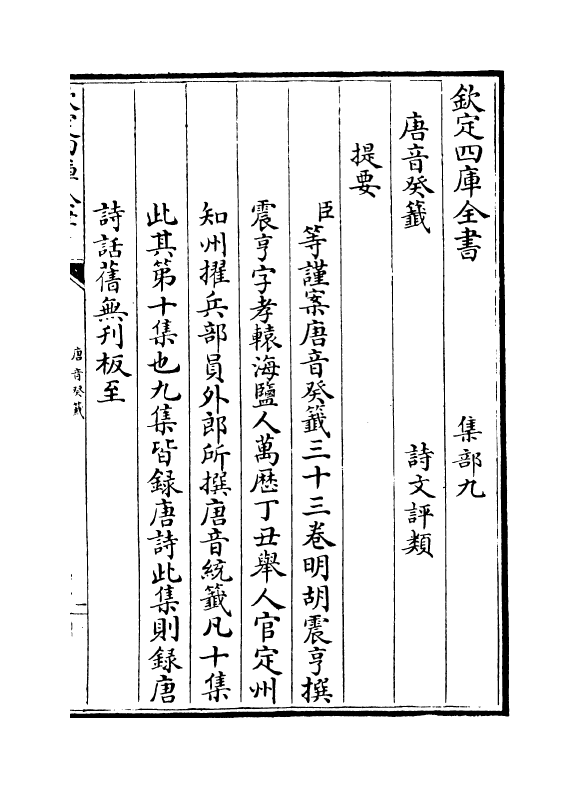 欽定四庫全書 集部九
唐音癸籖 詩文評類
提要
臣等謹案唐音癸籖三十三卷明胡震亨撰
震亨字孝轅海鹽人萬歷丁丑舉人官定州
知州擢兵部員外郎所撰唐音統籖凡十集
此其第十集也九集皆録唐詩此集則録唐
詩話舊無刋板至
唐音癸籖